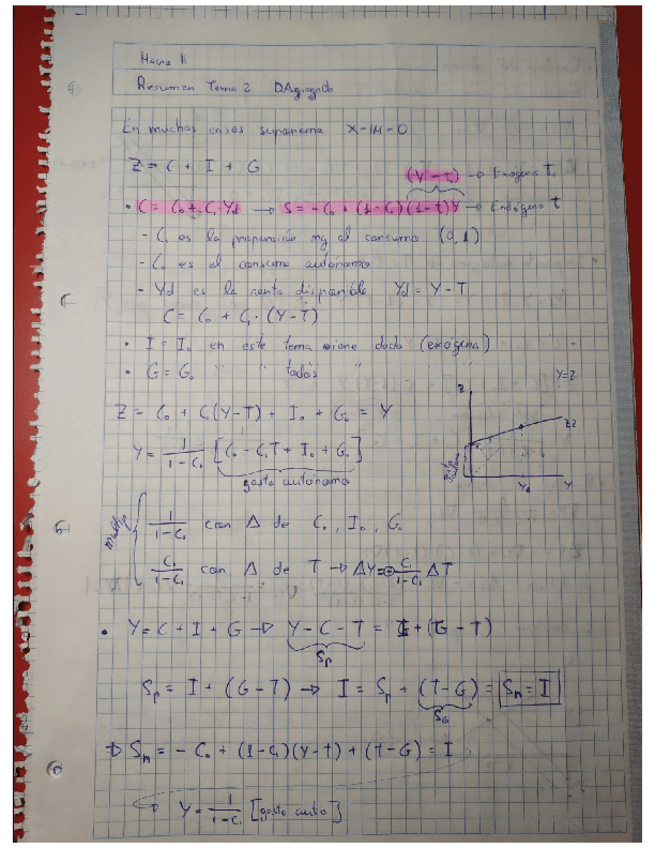 Macro II
Resumen Tema 2 DAgregada
En muchos casos suponemos X-IM=0
Z = C + I + G
(Y-T) → Exógeno To
• C = C₀ + C₁·Yd → S = -C₀ + (1-C₁)(1-t)Y → Endógeno t
- C₁ es la propensión mg al consumo (0,1)
- C₀ es el consumo autónomo
- Yd es la renta disponible Yd = Y - T
C = C₀ + C₁·(Y-T)
• I = I₀ en este tema viene dada (exógena)
• G = G₀ " " todos " "
Y=Z
Z
Z = C₀ + C₁(Y-T) + I₀ + G₀ = Y
ZZ
Y = 1/(1-C₁) [C₀ - C₁T + I₀ + G₀]
gasto autónomo
Y
1/(1-C₁) con Δ de C₀, I₀, G₀
C₁/(1-C₁) con Δ de T → ΔY = ⊖ C₁/(1-C₁) ΔT
• Y = C + I + G → Y - C - T = I + (G - T)
Sp
Sp = I + (G-T) → I = Sp + (T-G) = Sn = I
SG
⇒ Sn = -C₀ + (1-C₁)(Y-T) + (T-G) = I
→ Y = 1/(1-C₁) [gasto auto]